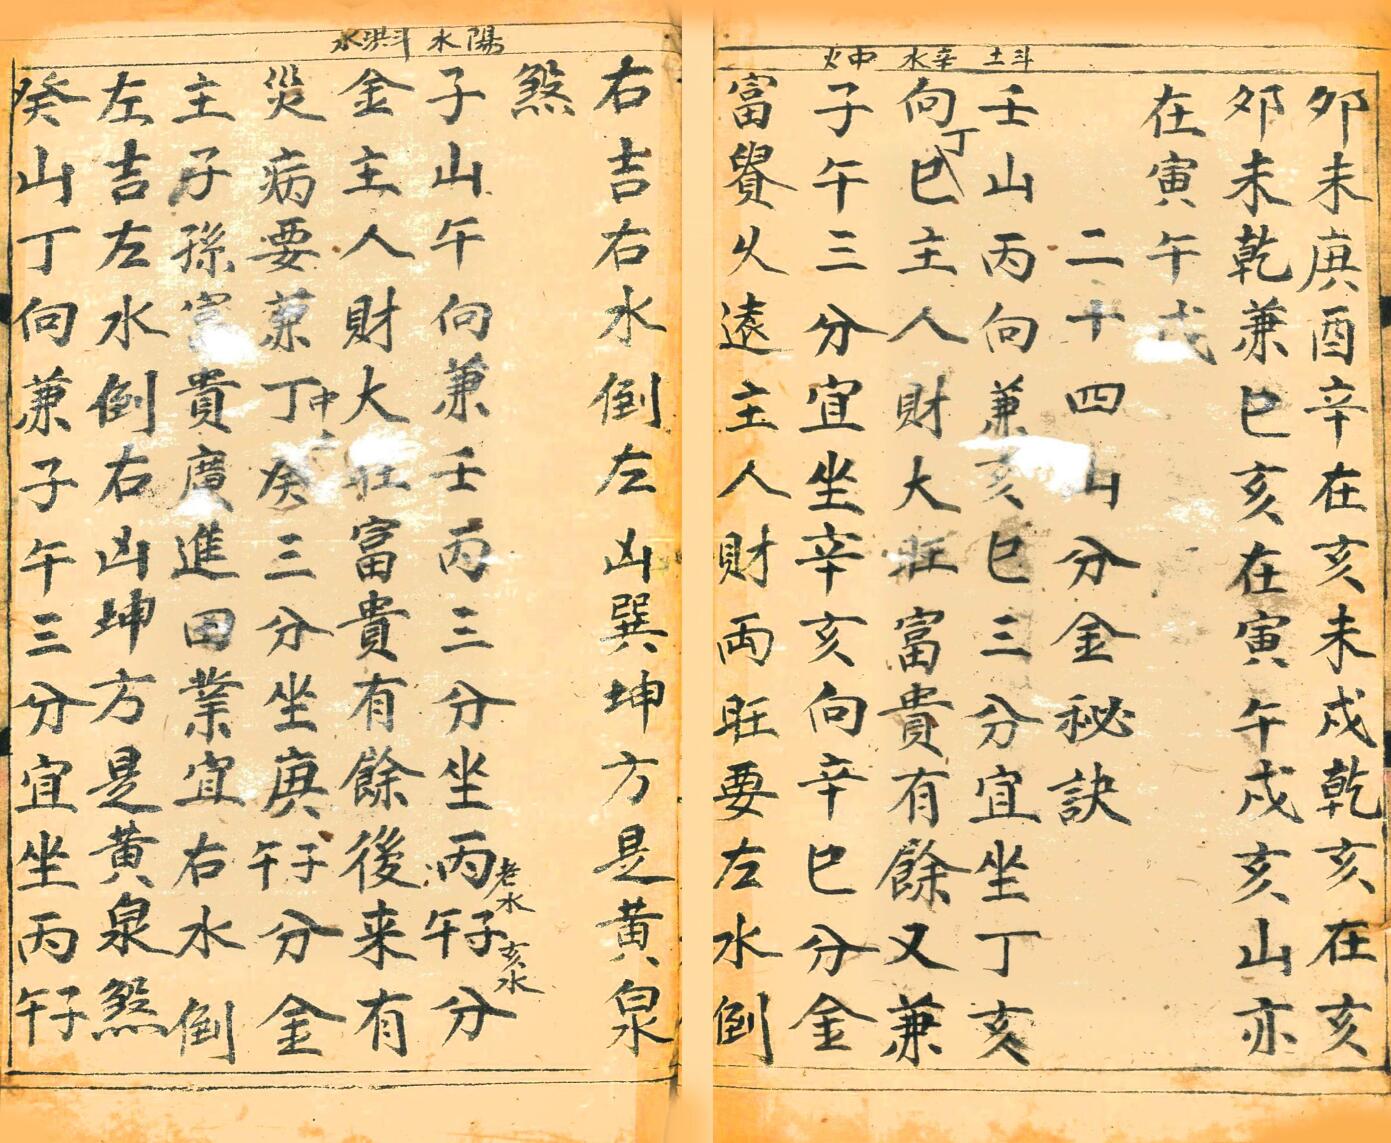 斗土 辛水 中火
卯未庚酉辛在亥未戌乾亥在亥
卯未乾兼巳亥在寅午戌亥山亦
在寅午戌
二十四山分金秘訣
壬山丙向兼亥巳三分宜坐丁亥
向丁巳主人財大旺富貴有餘又兼
子午三分宜坐辛亥向辛巳分金
富貴久遠主人財両旺要左水倒
陽水 斗洪水
右吉右水倒左凶巽坤方是黄泉
煞
子山午向兼壬丙三分坐丙子午分
老水 亥水
金主人財大旺富貴有餘後来有
災病要兼丁癸三分坐庚子午分金
中
主子孫富貴廣進田業宜右水倒
左吉左水倒右凶坤方是黄泉煞
癸山丁向兼子午三分宜坐丙子午